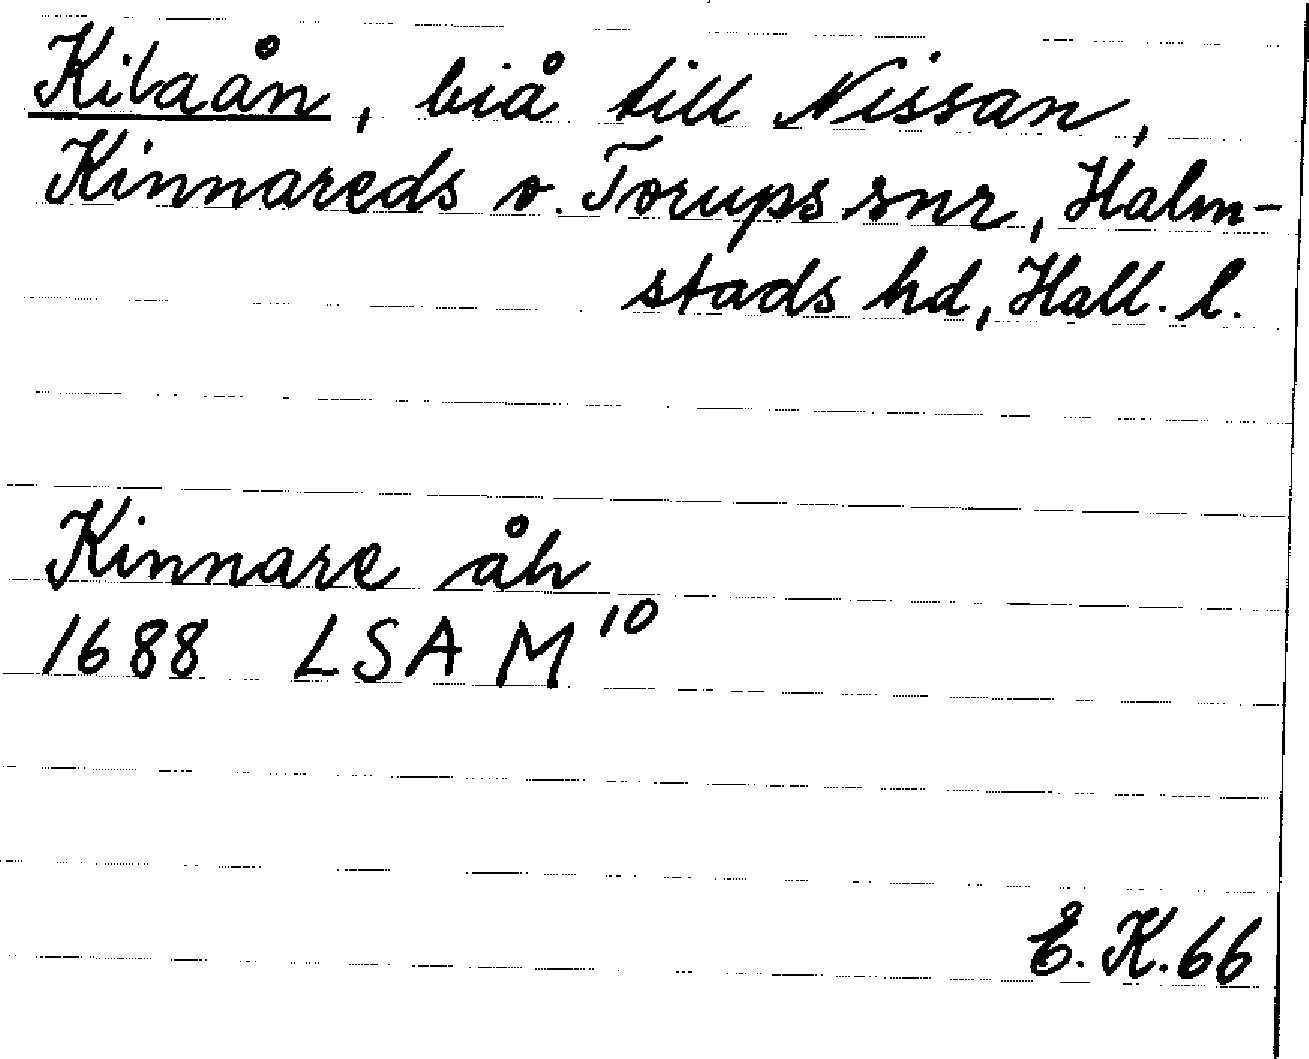 Kilaån, biå till Nissan,
Kinnareds o. Torups snr, Halm-
stads hd, Hall. l.
Kinnare åh
1688 LSA M¹⁰
E. K. 66